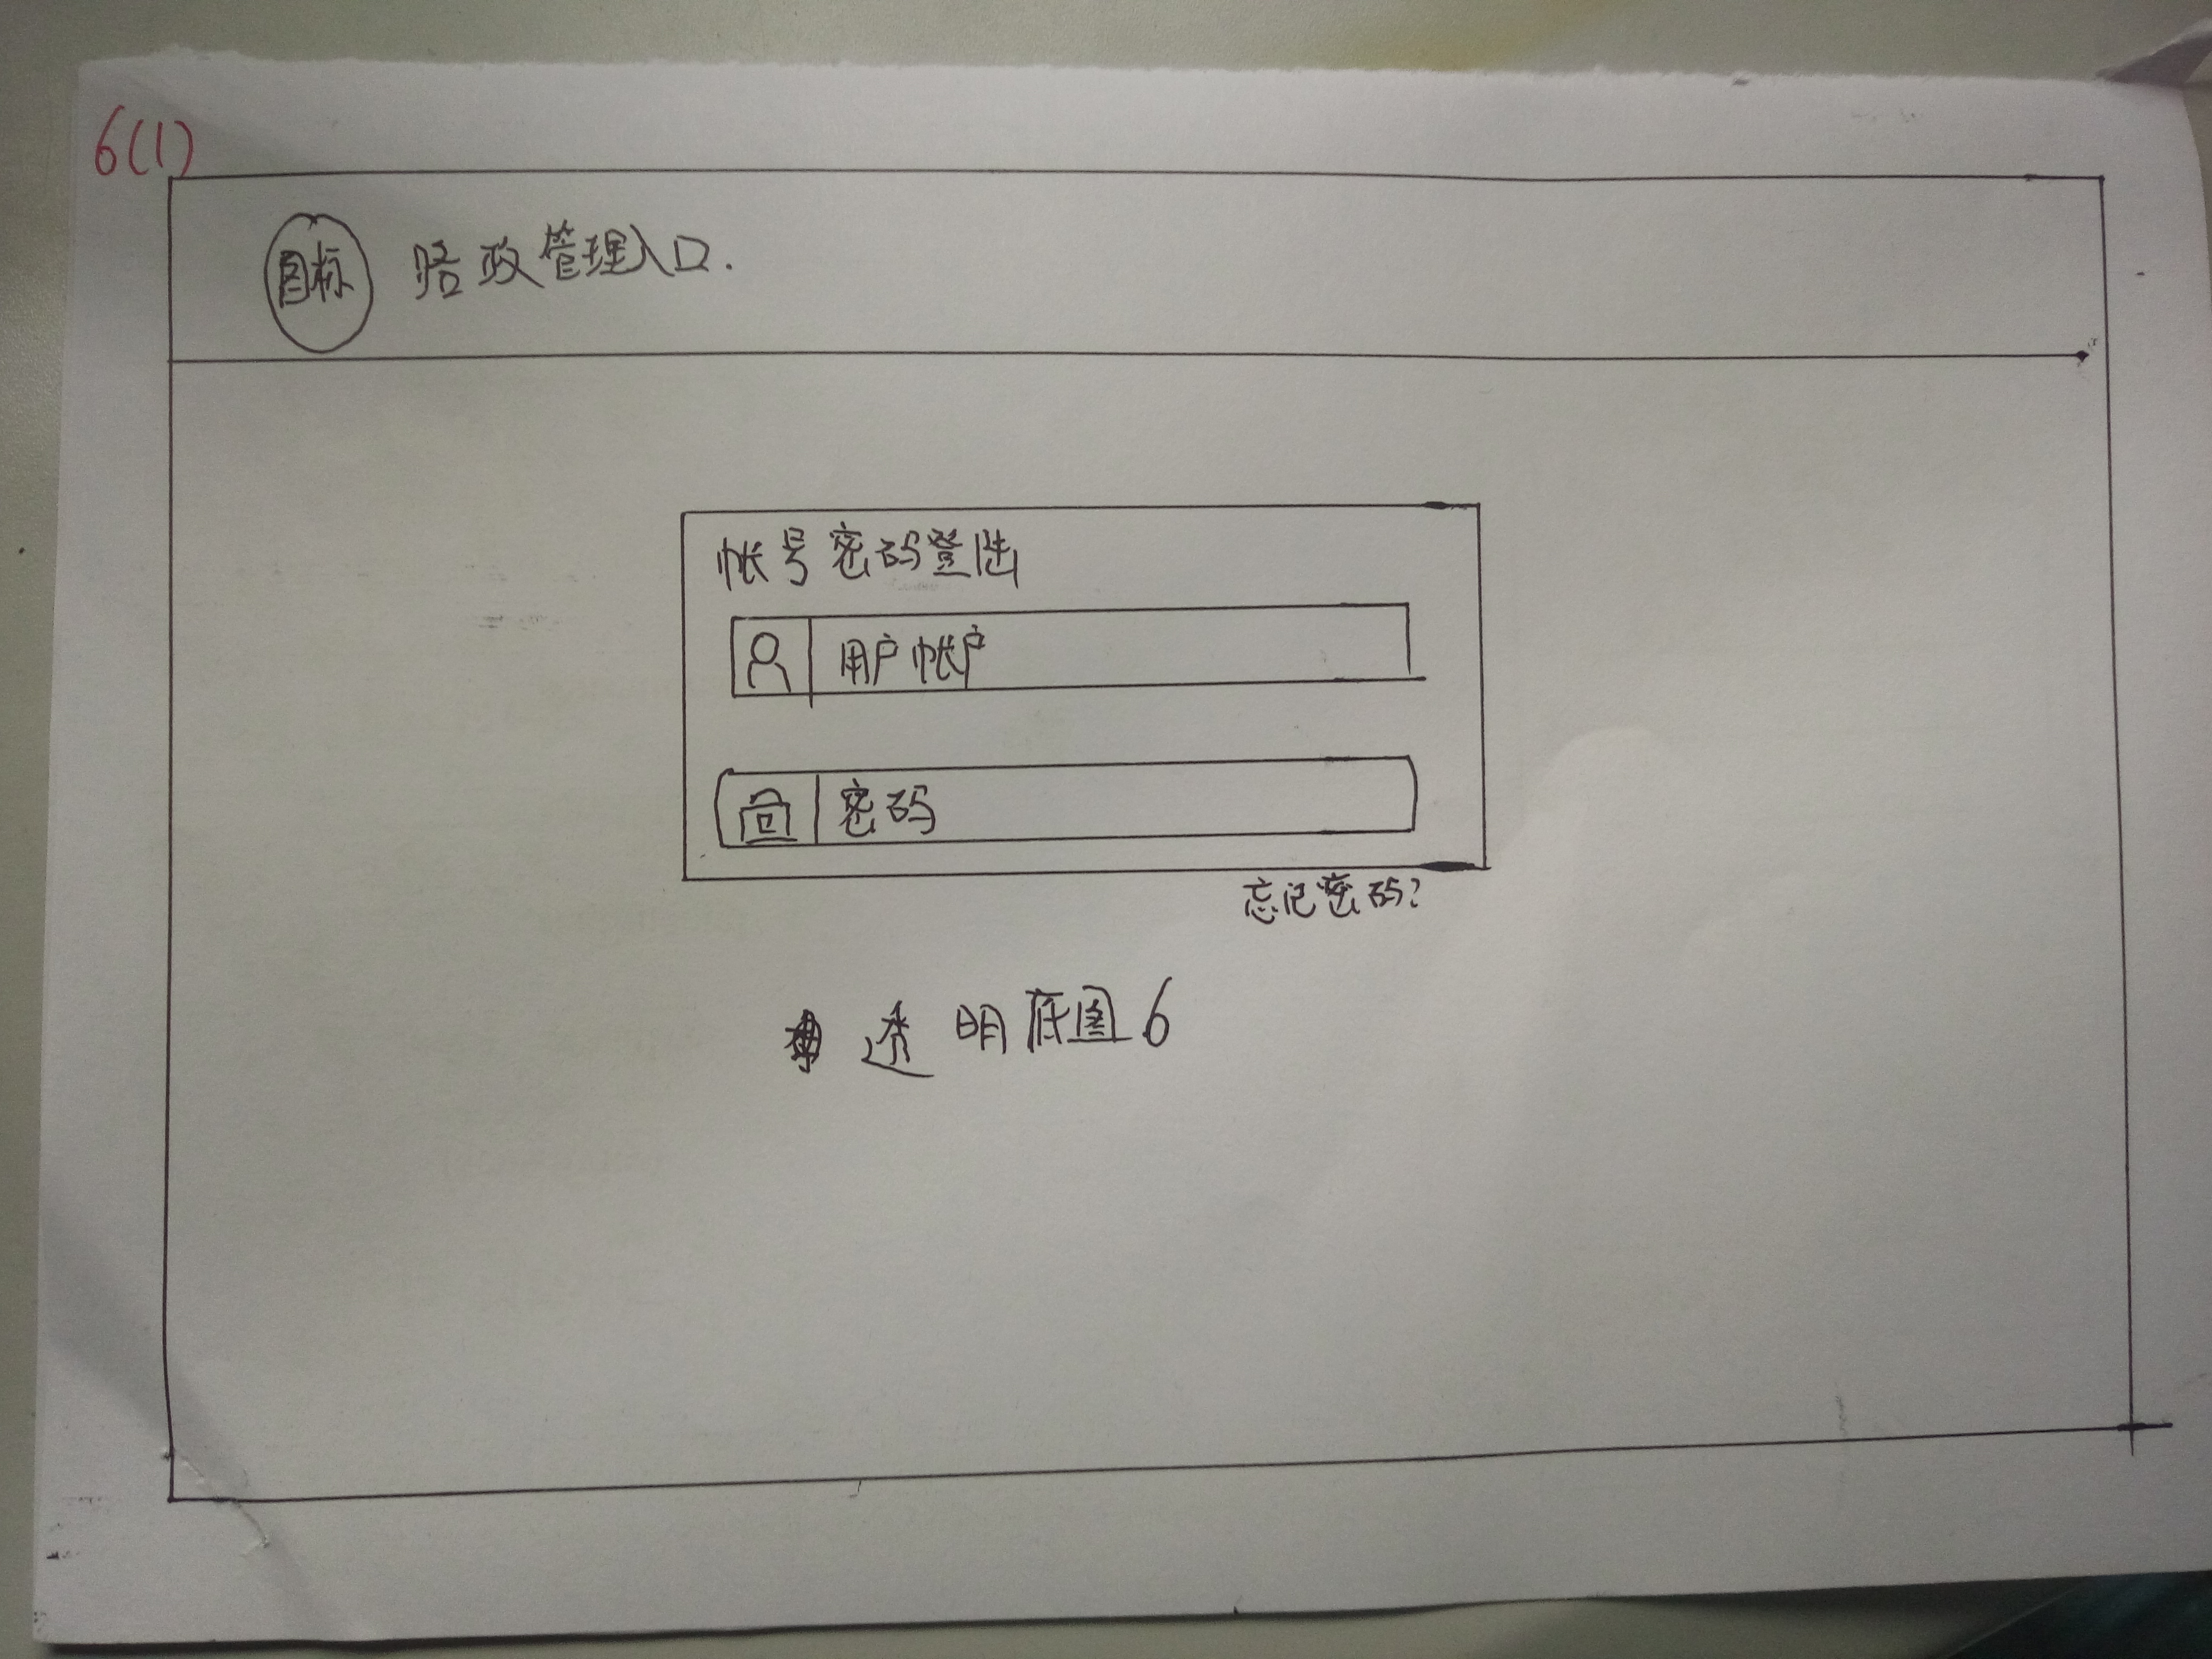 6(1)
图标 路政管理入口.
帐号密码登陆
用户帐户
密码
忘记密码?
透明底图6